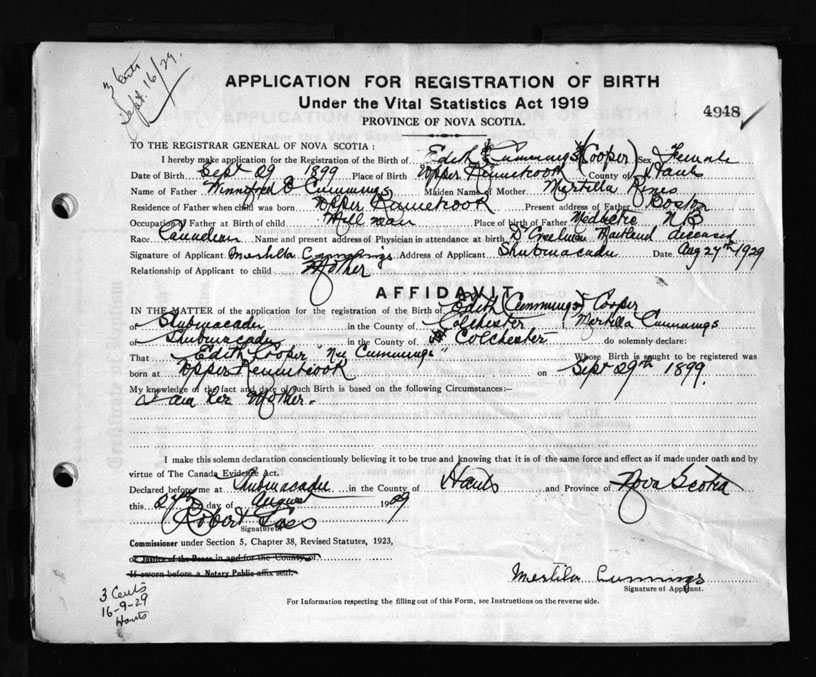 3 Cents
Sept. 16/29.
APPLICATION FOR REGISTRATION OF BIRTH
Under the Vital Statistics Act 1919
4948
PROVINCE OF NOVA SCOTIA.
TO THE REGISTRAR GENERAL OF NOVA SCOTIA :
I hereby make application for the Registration of the Birth of Edith Cummings (Cooper) Sex Female
Date of Birth Sept 29 1899 Place of Birth Upper Kennetcook County of Hants
Name of Father Cummings Maiden Name of Mother
Residence of Father when child was born Upper Kennetcook Present address of Father Boston
Occupation of Father at Birth of child. Mill man Place of birth of Father N B
Race Canadian Name and present address of Physician in attendance at birth Maitland deceased
Signature of Applicant Mertilla Cummings Address of Applicant Shubinacadie Date Aug 27th 1929
Relationship of Applicant to child Mother
AFFIDAVIT
IN THE MATTER of the application for the registration of the Birth of Edith Cummings Cooper
of Shubinacadie in the County of Colchester I, Mertilla Cummings
of Shubinacadie in the County of Colchester do solemnly declare:
That Edith Cooper "Nee Cummings" Whose Birth is sought to be registered was
born at Upper Kennetcook on Sept 29th 1899.
My knowledge of the fact and date of such Birth is based on the following Circumstances:—
I am her Mother.
I make this solemn declaration conscientiously believing it to be true and knowing that it is of the same force and effect as if made under oath and by
virtue of The Canada Evidence Act.
Declared before me at Shubinacadie in the County of Hants and Province of Nova Scotia
this 27th day of August 1929
Robert
Signature of
Commissioner under Section 5, Chapter 38, Revised Statutes, 1923,
or Justice of the Peace in and for the County of
If sworn before a Notary Public affix seal.
Mertilla Cummings
Signature of Applicant.
3 Cents
16-9-29
Hants
For Information respecting the filling out of this Form, see Instructions on the reverse side.